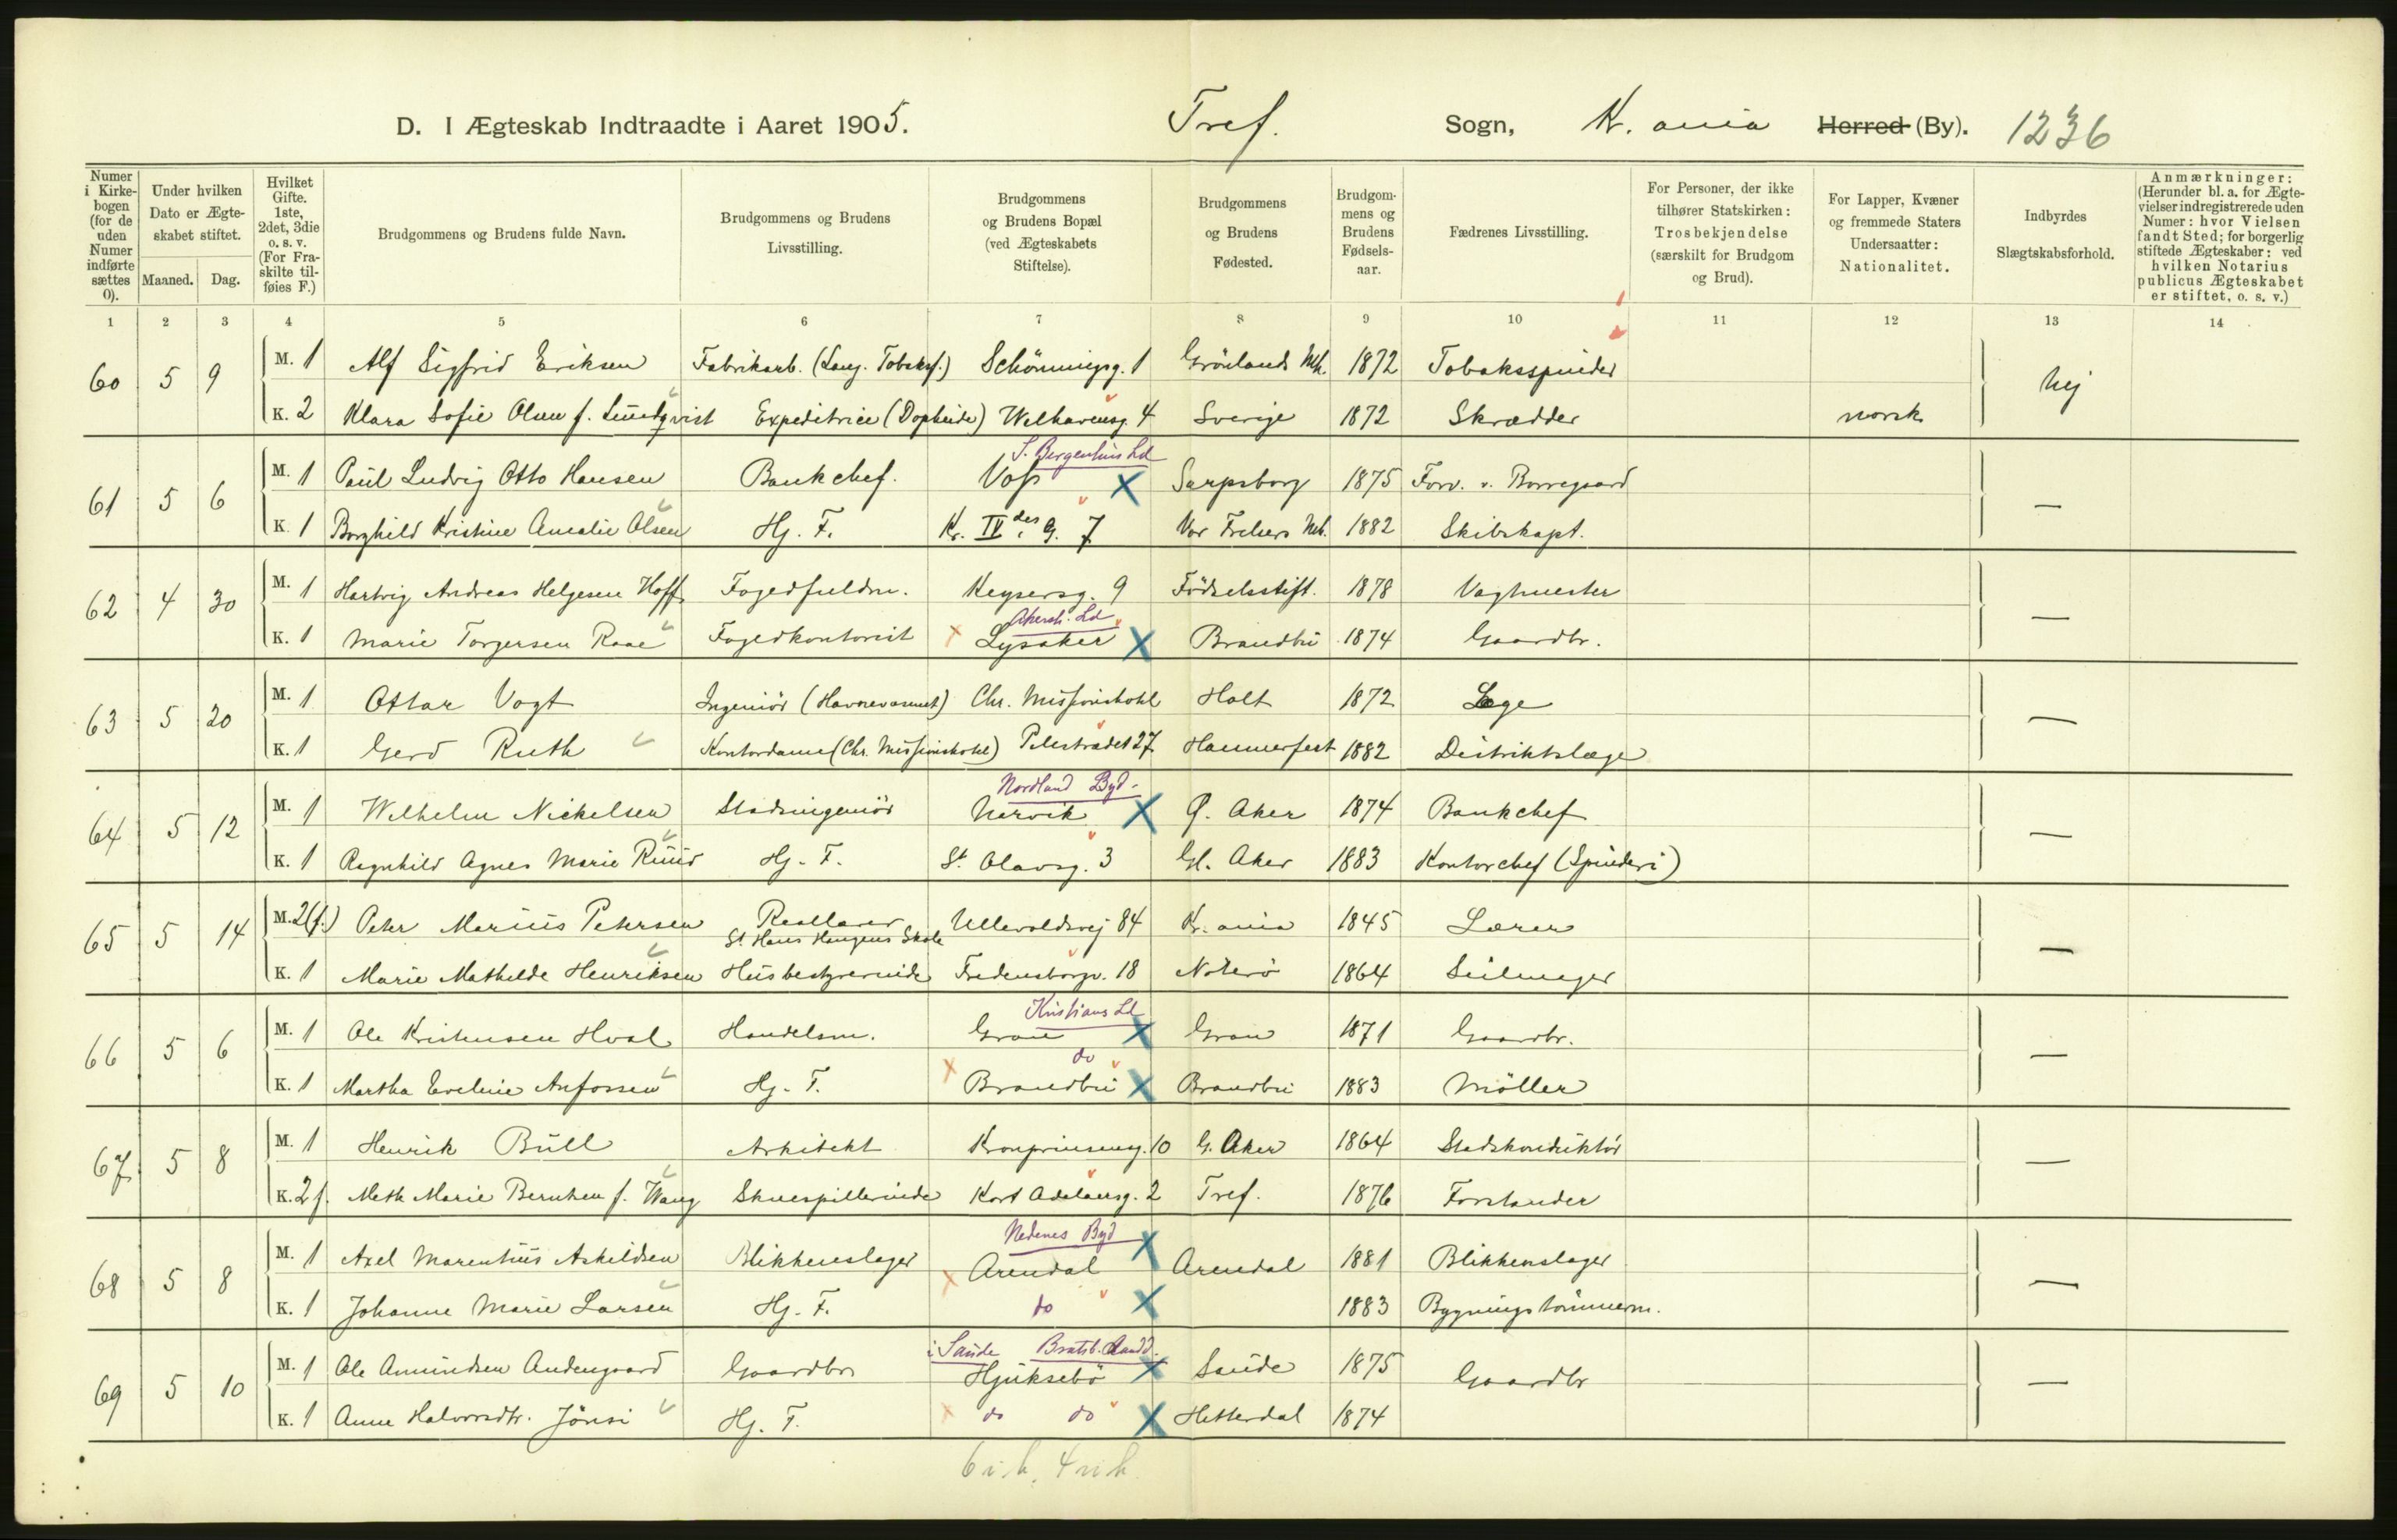 D. I Ægteskab Indtraadte i Aaret 1905. Tref. Sogn, Kr.ania Herred (By). 1236
Numer i Kirkebogen (for de uden Numer indførte sættes 0). Under hvilken Dato er Ægteskabet stiftet. Maaned. Dag. Hvilket Gifte. 1ste, 2det, 3die o. s. v. (For Fraskilte tilføies F.) Brudgommens og Brudens fulde Navn. Brudgommens og Brudens Livsstilling. Brudgommens og Brudens Bopæl (ved Ægteskabets Stiftelse). Brudgommens og Brudens Fødested. Brudgommens og Brudens Fødselsaar. Fædrenes Livsstilling. For Personer, der ikke tilhører Statskirken: Trosbekjendelse (særskilt for Brudgom og Brud). For Lapper, Kvæner og fremmede Staters Undersaatter: Nationalitet. Indbyrdes Slægtskabsforhold. Anmærkninger: (Herunder bl. a. for Ægtevielser indregistrerede uden Numer: hvor Vielsen fandt Sted; for borgerlig stiftede Ægteskaber: ved hvilken Notarius publicus Ægteskabet er stiftet, o. s. v.)
1 2 3 4 5 6 7 8 9 10 11 12 13 14
60 5 9 M. 1 Alf Sigfrid Eriksen Fabrikarb. (Lang. Tobaksf.) Schönningsg. 1 Grönlands Mh. 1872 Tobaksspinder Nej
K. 2 Klara Sofie Olsen f. Lundqvist Expeditrice Welhavensg. 4 Sverige 1872 Skrædder norsk
S. Bergenhus Ld
61 5 6 M. 1 Paul Ludvig Otto Hansen Bankchef. Voss X Sarpsborg 1875 Forv. v. Borregaard —
K. 1 Borghild Kristine Amalie Olsen Hj. F. Kr. IV des G. 7 Vor Frelsers Mh. 1882 Skibskapt.
62 4 30 M. 1 Hartvig Andreas Helgesen Hoff Fogedfuldm. Keysersg. 9 Födselsstift. 1878 Vagtmester —
Akersh. Ld
K. 1 Marie Torgersen Raae Fogedkontorist X Lysaker X Brandbu 1874 Gaardbr.
63 5 20 M. 1 Ottar Vogt Ingeniör (Havnevæsnet) Chr. Missionshotel Holt 1872 Læge —
K. 1 Gerd Ruth Kontordame (Chr. Missionshotel) Pilestrædet 27 Hammerfest 1882 Distriktslæge
Nordland Byd.
64 5 12 M. 1 Wilhelm Nickelsen Stadsingeniör Narvik X G. Aker 1874 Bankchef —
K. 1 Ragnhild Agnes Marie Ruud Hj. F. St. Olavsg. 3 Gl. Aker 1883 Kontorchef (Spinderi)
65 5 14 M. 2(f.) Peter Marius Petersen Reallærer Ullevoldsvej 84 Kr.ania 1845 Lærer —
St. Hans Haugens Skole
K. 1 Marie Mathilde Henriksen Husbestyrerinde Fredensborgv. 18 Nöterö 1864 Seilmager
Kristians Ld
66 5 6 M. 1 Ole Kristensen Hval Handelsm. Gran X Gran 1871 Gaardbr. —
do
K. 1 Martha Eveline Anfossen Hj. F. X Brandbu X Brandbu 1883 Möller
67 5 8 M. 1 Henrik Bull Arkitekt Kronprinseng. 10 G. Aker 1864 Stadskonduktör —
K. 2 f. Mette Marie Berntsen f. Wang Skuespillerinde Kort Adelersg. 2 Tref. 1876 Forstander
Nedenes Byd
68 5 8 M. 1 Axel Marentius Askildsen Blikkenslager Arendal X Arendal 1881 Blikkenslager —
K. 1 Johanne Marie Larsen Hj. F. X do X 1883 Bygningstömmerm.
i Saude Bratsb. Landd.
69 5 10 M. 1 Ole Amundsen Andengaard Gaardbr Hjuksebö X Saude 1875 Gaardbr —
K. 1 Anne Halvorsdtr. Jönsi Hj. F. X do do X Hitterdal 1874